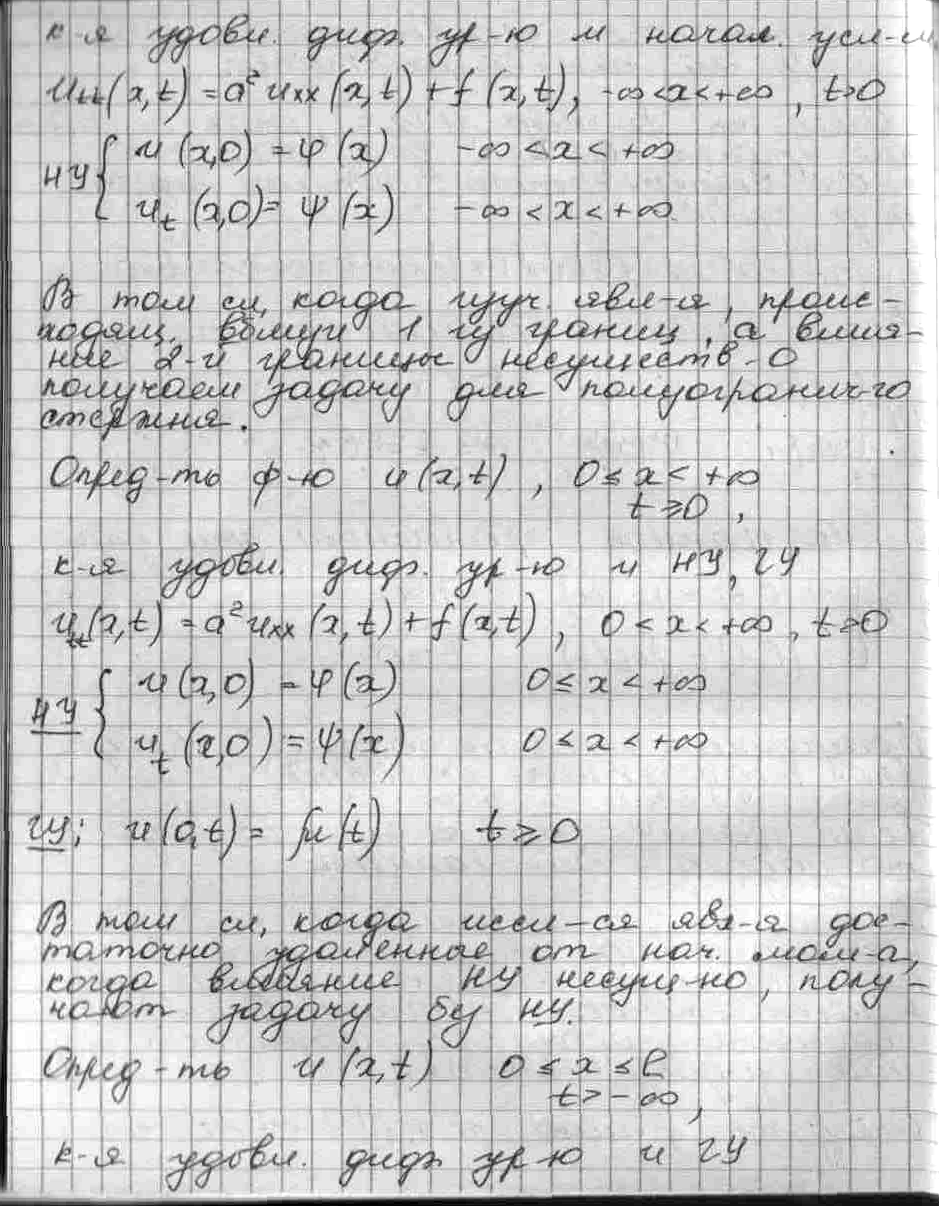 к-я удовл. диф. ур-ю и начал. усл-м
u_tt(x,t) = a² u_xx (x,t) + f (x,t), -∞<x<+∞, t>0
НУ { u (x,0) = φ (x) -∞ < x < +∞
u_t (x,0) = ψ (x) -∞ < x < +∞
В том сл, когда изуч. явл-я, проис-
ходящ. вблизи 1 из границ, а влия-
ние 2-й границы несуществ-о
получаем задачу для полуогранич-го
стержня.
Опред-ть ф-ю u(x,t), 0 ≤ x < +∞
t ≥ 0,
к-я удовл. диф. ур-ю и НУ, ГУ
u_tt(x,t) = a² u_xx (x,t) + f (x,t), 0 < x < +∞, t>0
НУ { u (x,0) = φ (x) 0 ≤ x < +∞
u_t (x,0) = ψ (x) 0 ≤ x < +∞
ГУ: u (0,t) = μ (t) t ≥ 0
В том сл, когда иссл-ся явл-я дос-
таточно удаленные от нач. мом-а,
когда влияние НУ несущ-но, полу-
чают задачу без НУ.
Опред-ть u (x,t) 0 ≤ x ≤ l
t > -∞,
к-я удовл. диф ур-ю и ГУ